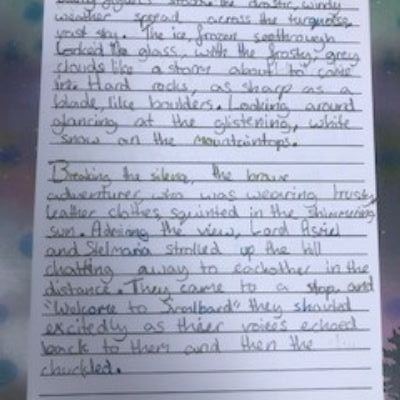 the drastic, windy
weather spread across the turquoise,
vast sky. The ice, frozen seethrough
looked like glass, with the frosty, grey
clouds like a storm about to come
in. Hard rocks, as sharp as a
blade, like boulders. Looking around
glancing at the glistening, white
snow on the mountaintops.
Breaking the silence, the brave
adventurer, who was wearing trusty
leather clothes, squinted in the shimmering
sun. Admiring the view, Lord Asriel
and Stelmaria strolled up the hill
chatting away to eachother in the
distance. They came to a stop and
"Welcome to Svalbard" they shouted
excitedly as thier voices echoed
back to them and then the
chuckled.